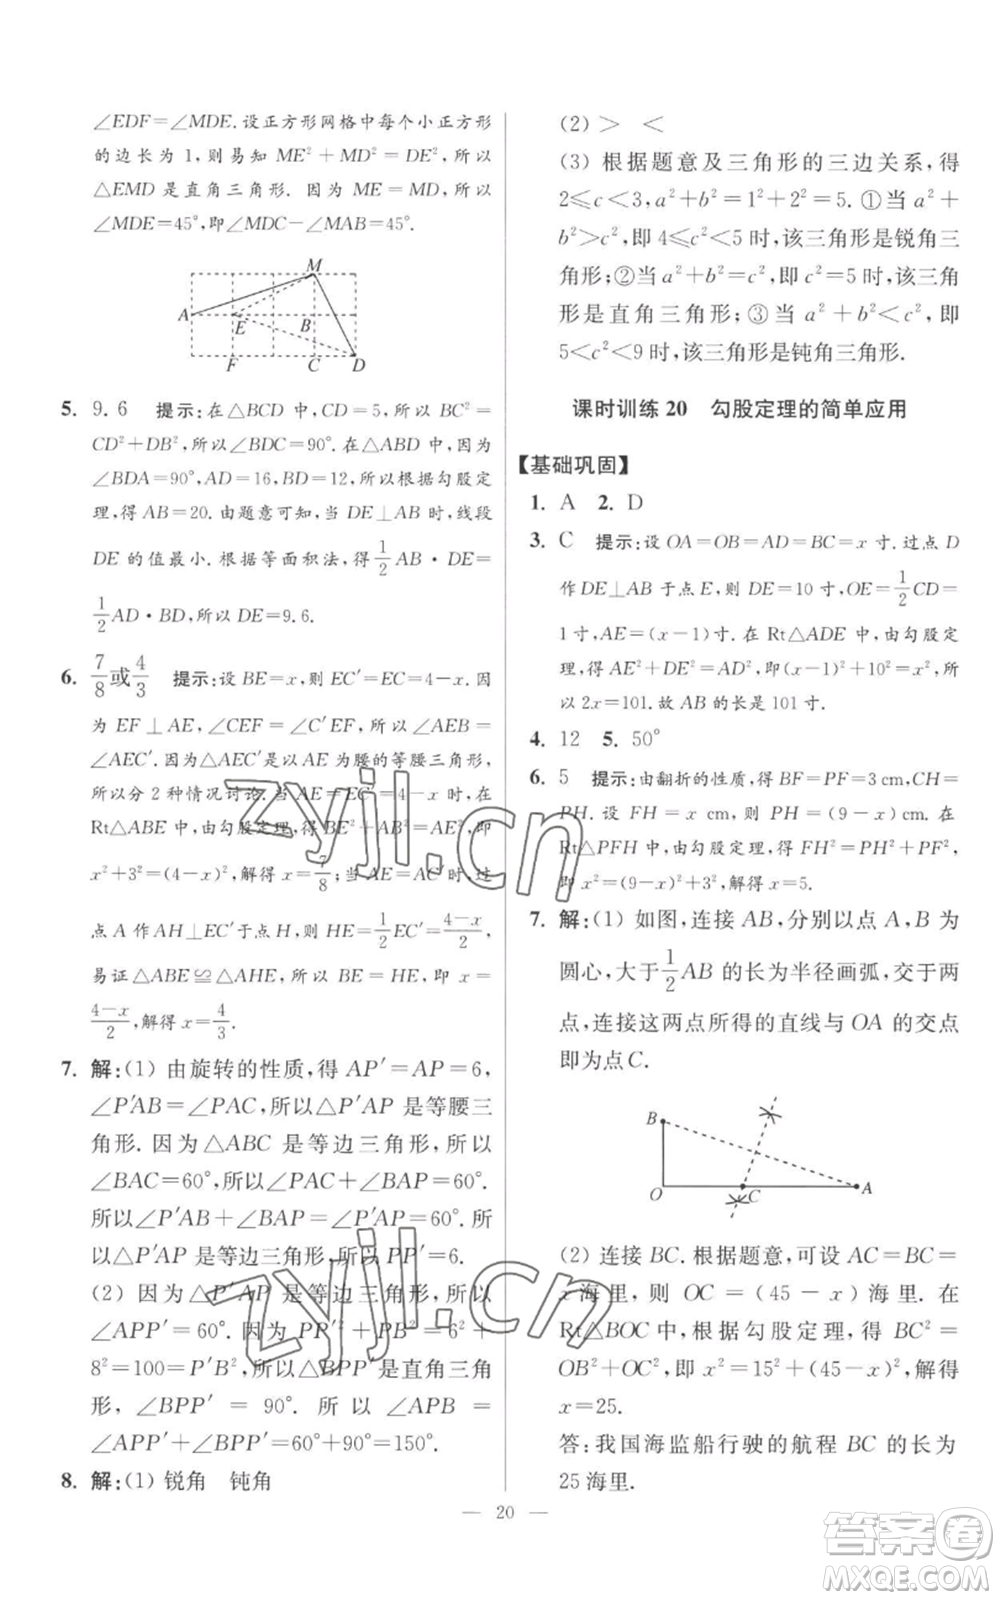 ∠EDF=∠MDE.设正方形网格中每个小正方形
的边长为 1,则易知 ME²+MD²=DE²,所以
△EMD 是直角三角形. 因为 ME=MD,所以
∠MDE=45°,即∠MDC-∠MAB=45°.
M
A E B
F C D
5. 9.6 提示:在△BCD 中,CD=5,所以 BC²=
CD²+DB²,所以∠BDC=90°.在△ABD 中,因为
∠BDA=90°,AD=16,BD=12,所以根据勾股定
理,得 AB=20.由题意可知,当 DE⊥AB 时,线段
DE 的值最小.根据等面积法,得 1/2 AB·DE=
1/2 AD·BD,所以 DE=9.6.
6. 7/8 或 4/3 提示:设 BE=x,则 EC′=EC=4-x.因
为 EF⊥AE,∠CEF=∠C′EF,所以∠AEB=
∠AEC′.因为△AEC′是以 AE 为腰的等腰三角形,
所以分 2 种情况讨论.当 AE=EC′=4-x时,在
Rt△ABE 中,由勾股定理,得 BE²+AB²=AE²,即
x²+3²=(4-x)²,解得 x=7/8;当 AE=AC′时,过
点 A 作 AH⊥EC′于点 H,则 HE=1/2 EC′=(4-x)/2,
易证△ABE≌△AHE,所以 BE=HE,即 x=
(4-x)/2,解得 x=4/3.
7. 解:(1) 由旋转的性质,得 AP′=AP=6,
∠P′AB=∠PAC,所以△P′AP 是等腰三
角形.因为△ABC 是等边三角形,所以
∠BAC=60°,所以∠PAC+∠BAP=60°.
所以∠P′AB+∠BAP=∠P′AP=60°.所
以△P′AP 是等边三角形,所以 PP′=6.
(2) 因为△P′AP 是等边三角形,所以
∠APP′=60°.因为 PP′²+PB²=6²+
8²=100=P′B²,所以△BPP′是直角三角
形,∠BPP′=90°.所以∠APB=
∠APP′+∠BPP′=60°+90°=150°.
8. 解:(1) 锐角 钝角
(2) > <
(3) 根据题意及三角形的三边关系,得
2≤c<3,a²+b²=1²+2²=5.①当 a²+
b²>c²,即 4≤c²<5 时,该三角形是锐角三
角形;②当 a²+b²=c²,即 c²=5 时,该三角
形是直角三角形;③当 a²+b²<c²,即
5<c²<9 时,该三角形是钝角三角形.
课时训练 20 勾股定理的简单应用
【基础巩固】
1. A 2. D
3. C 提示:设 OA=OB=AD=BC=x 寸.过点 D
作 DE⊥AB 于点 E,则 DE=10 寸,OE=1/2 CD=
1寸,AE=(x-1)寸.在 Rt△ADE 中,由勾股定
理,得 AE²+DE²=AD²,即(x-1)²+10²=x²,所
以 2x=101.故 AB 的长是 101 寸.
4. 12 5. 50°
6. 5 提示:由翻折的性质,得 BF=PF=3 cm,CH=
PH.设 FH=x cm,则 PH=(9-x) cm.在
Rt△PFH 中,由勾股定理,得 FH²=PH²+PF²,
即 x²=(9-x)²+3²,解得 x=5.
7. 解:(1) 如图,连接 AB,分别以点 A,B 为
圆心,大于 1/2 AB 的长为半径画弧,交于两
点,连接这两点所得的直线与 OA 的交点
即为点 C.
B
O C A
(2) 连接 BC.根据题意,可设 AC=BC=
x 海里,则 OC=(45-x)海里.在
Rt△BOC 中,根据勾股定理,得 BC²=
OB²+OC²,即 x²=15²+(45-x)²,解得
x=25.
答:我国海监船行驶的航程 BC 的长为
25 海里.
— 20 —
zyjl.cn
zyjl.cn
答案圈
MXQE.COM